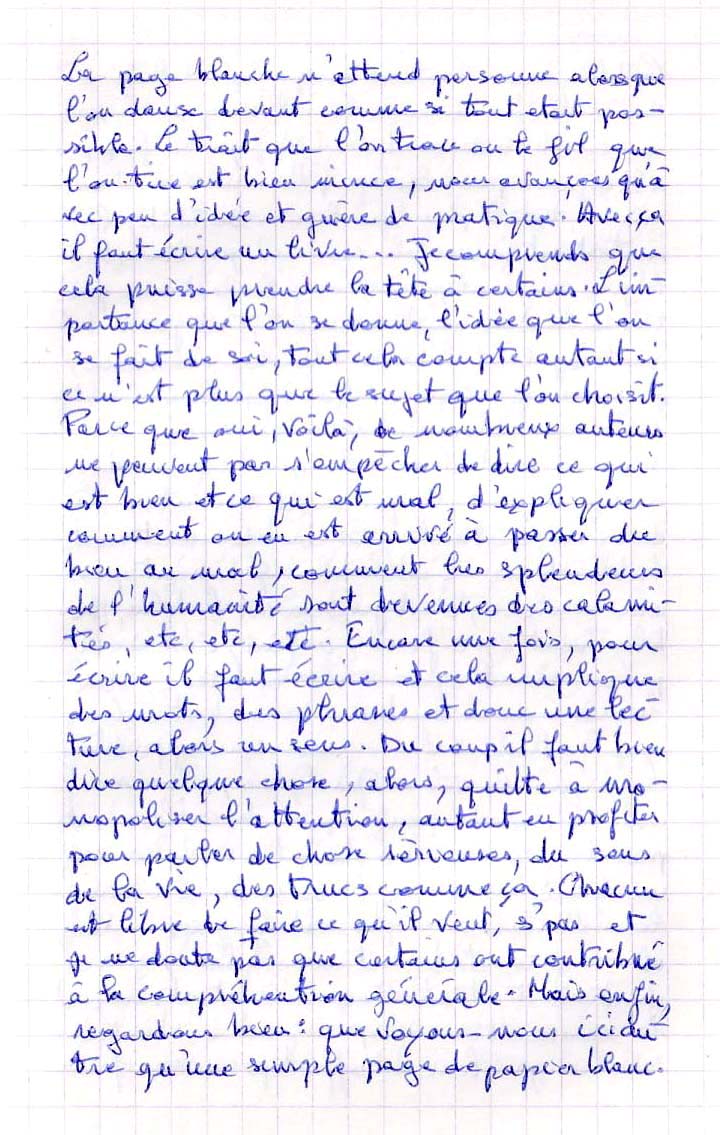 La page blanche n'attend personne alorsque
l'on danse devant comme si tout etait pos-
sible. Le trait que l'on trace ou le fil que
l'on tire est bien mince, nous avançons qu'a
vec peu d'idée et guère de pratique. Avec ça
il faut écrire un livre... Je comprends que
cela puisse prendre la tête à certains. L'im
portance que l'on se donne, l'idée que l'on
se fait de soi, tout cela compte autant si
ce n'est plus que le sujet que l'on choisit.
Parce que oui, voilà, de nombreux auteurs
ne peuvent pas s'empêcher de dire ce qui
est bien et ce qui est mal, d'expliquer
comment on en est arrivé à passer du
bien au mal, comment les splendeurs
de l'humanité sont devenues des calami-
tés, etc, etc, etc. Encore une fois, pour
écrire il faut écrire et cela implique
des mots, des phrases et donc une lec
ture, alors un sens. Du coup il faut bien
dire quelque chose, alors, quitte à mo-
nopoliser l'attention, autant en profiter
pour parler de chose sérieuses, du sens
de la vie, des trucs comme ça. Chacun
est libre de faire ce qu'il veut, s'pas et
je ne doute pas que certains ont contribué
à la compréhention générale. Mais enfin,
regardons bien : que voyons-nous ici au
tre qu'une simple page de papier blanc.